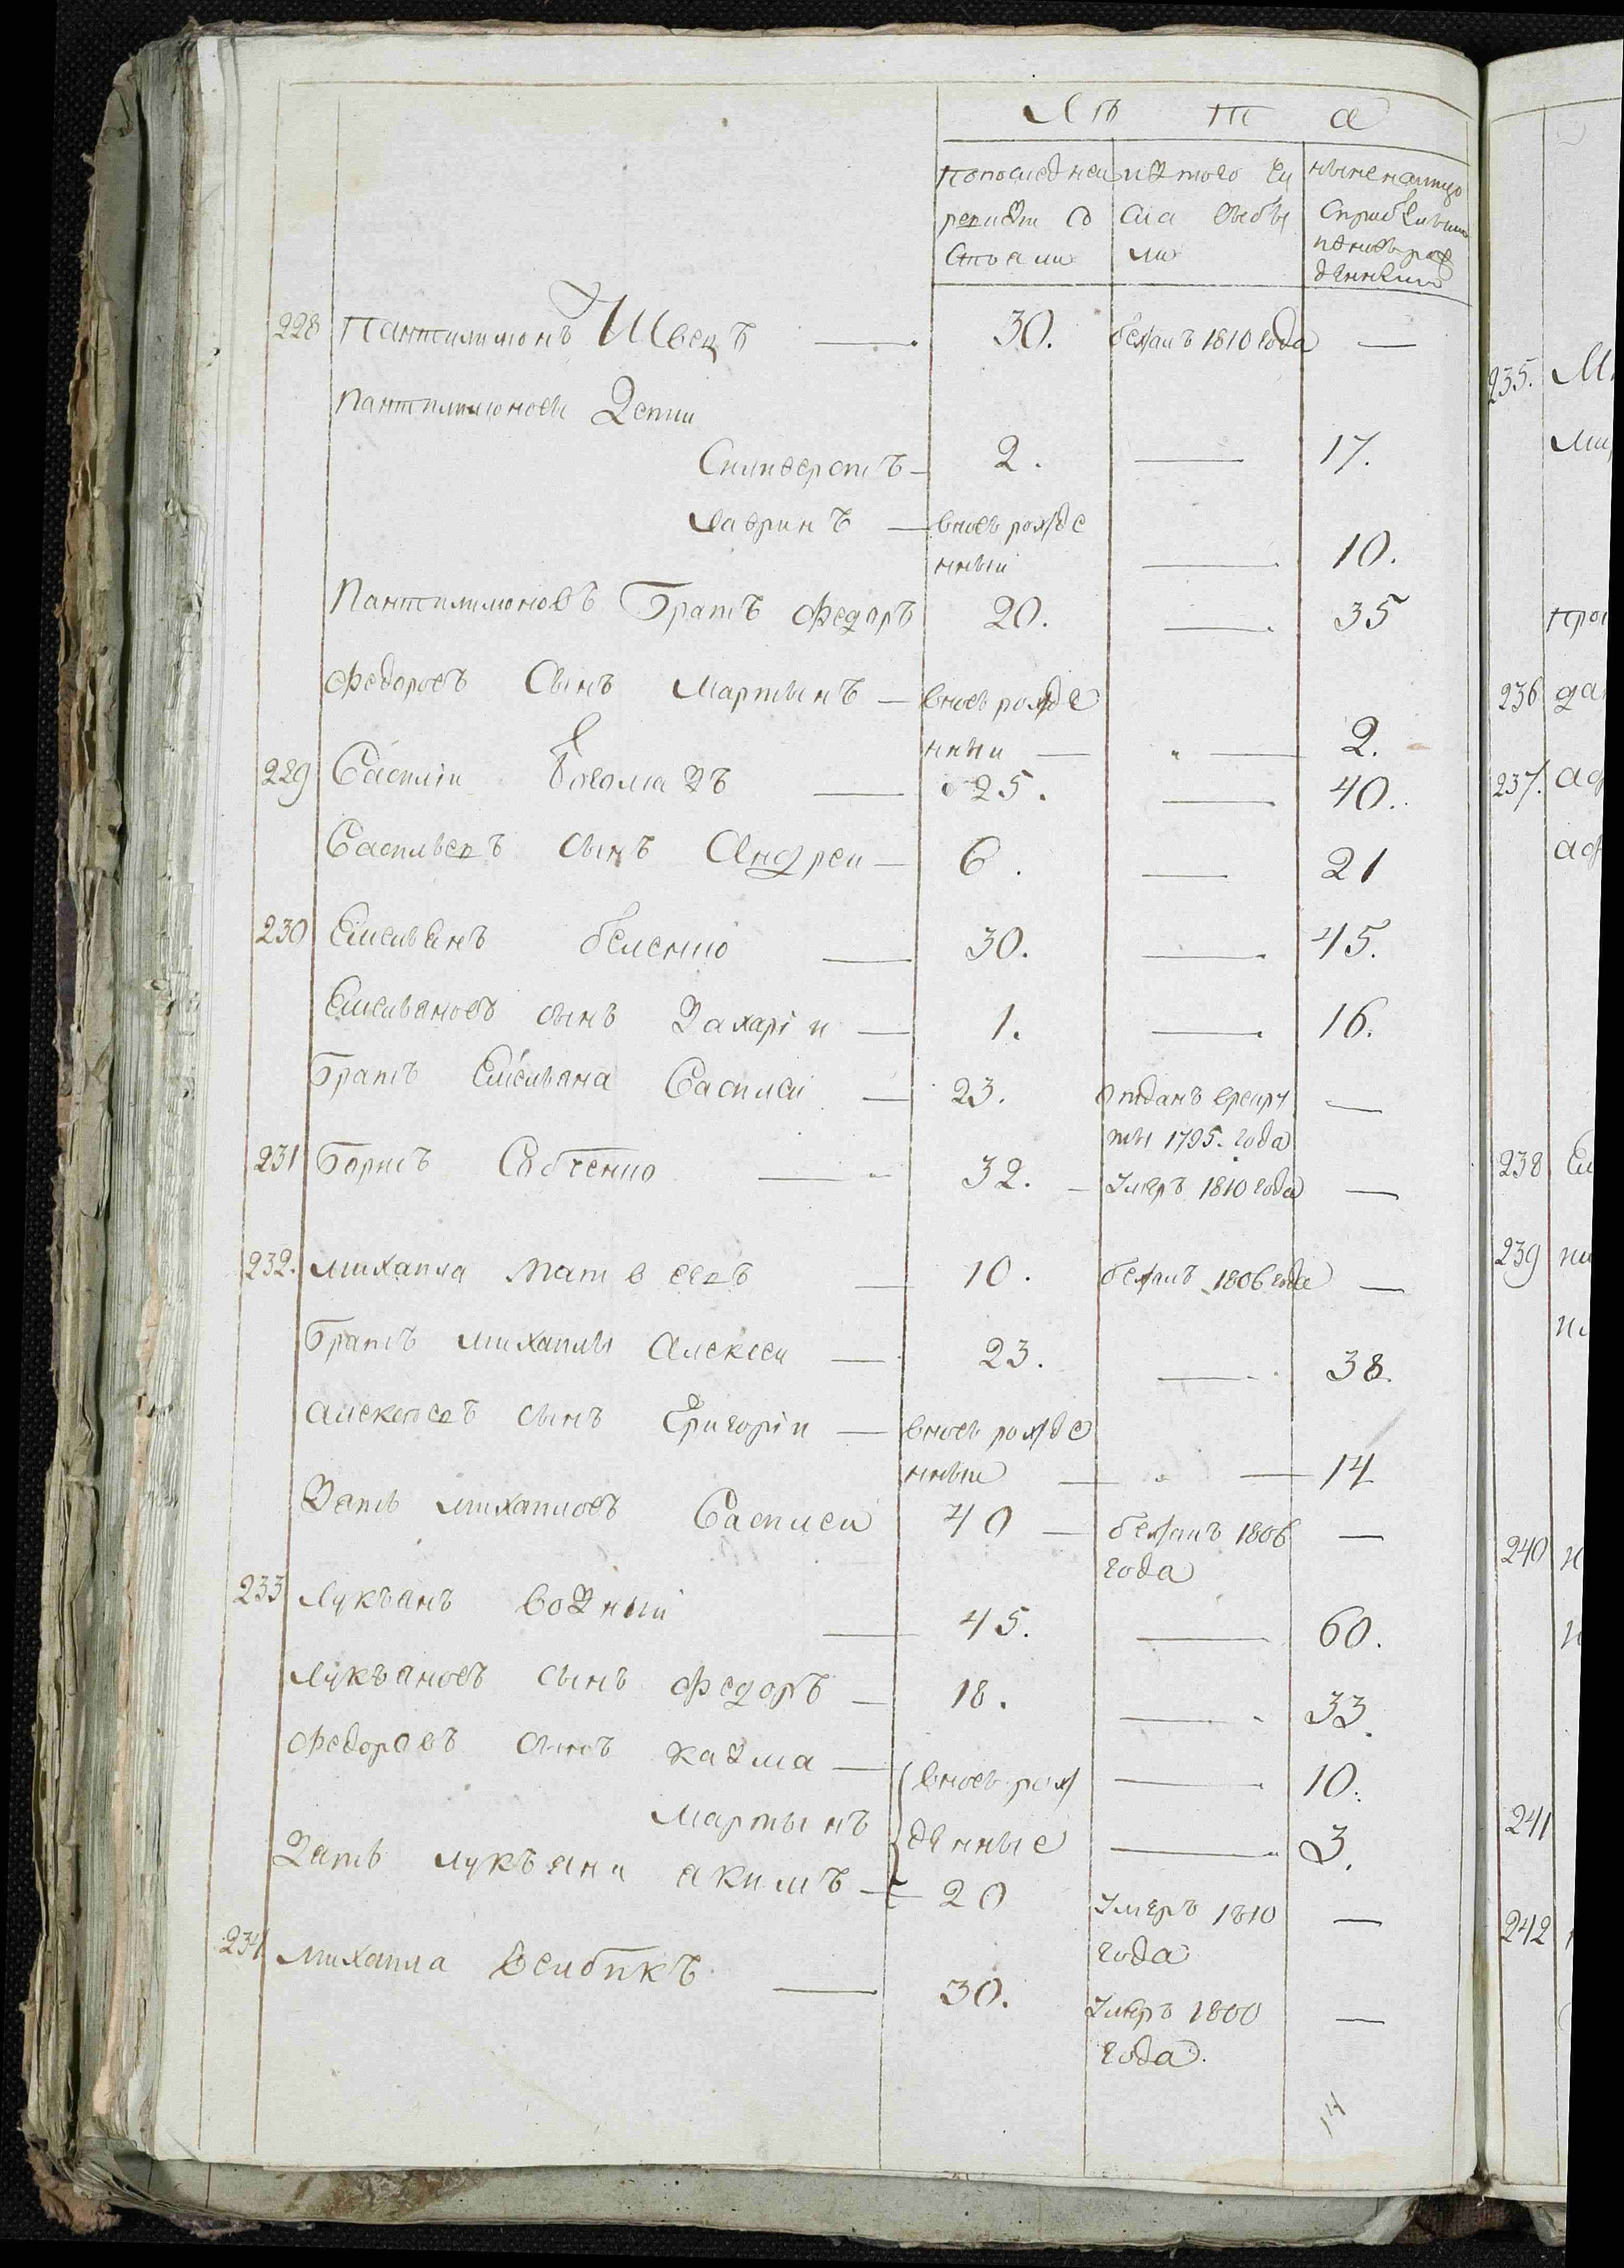 Лѣта
по последней ревизіи состояли
изтого числа выбыли
ныне налицо
228 Пантилимонъ Швецъ — 30. бежалъ 1810 года —
Пантилимоновы Дети
Силиверстъ — 2. — 17.
Лавринъ — вновь рожде
нный — 10.
Пантилимоновъ Братъ Федоръ 20. — 35
Федоровъ Сынъ Мартынъ — вновь рожде
нный — " — 2.
229 Василіи Богомазъ — 25. — 40.
Васильевъ сынъ Андреи — 6. — 21
230 Емельянъ беленко — 30. — 45.
Емельяновъ сынъ Захаріи — 1. — 16.
Братъ Емельяна Василеи — 23. отданъ врекру —
ты 1795. года
231 Борисъ Собченко — 32. — Умеръ 1810 года —
232. михаила матвеевъ — 10. бежалъ 1806 года —
Братъ михаилы Алексеи — 23. — 38.
алексеевъ сынъ Григоріи — вновь рожде
нныи — " — 14
Зать михаиловъ Василеи 40 — бежалъ 1806 —
года
233 Лукъянъ возныи — 45. — 60.
Лукъяновъ сынъ Федоръ — 18. — 33.
Федоровъ сынъ казма — вновь рож — 10.
Мартынъ денные — 3.
Зать лукъяна акимъ — 20 Умеръ 1810 —
года
234 михаила — 30. Умеръ 1800 —
года.
14
235. М
ми
про
236 да
237. аф
аф
238 Ем
239
240
241
242